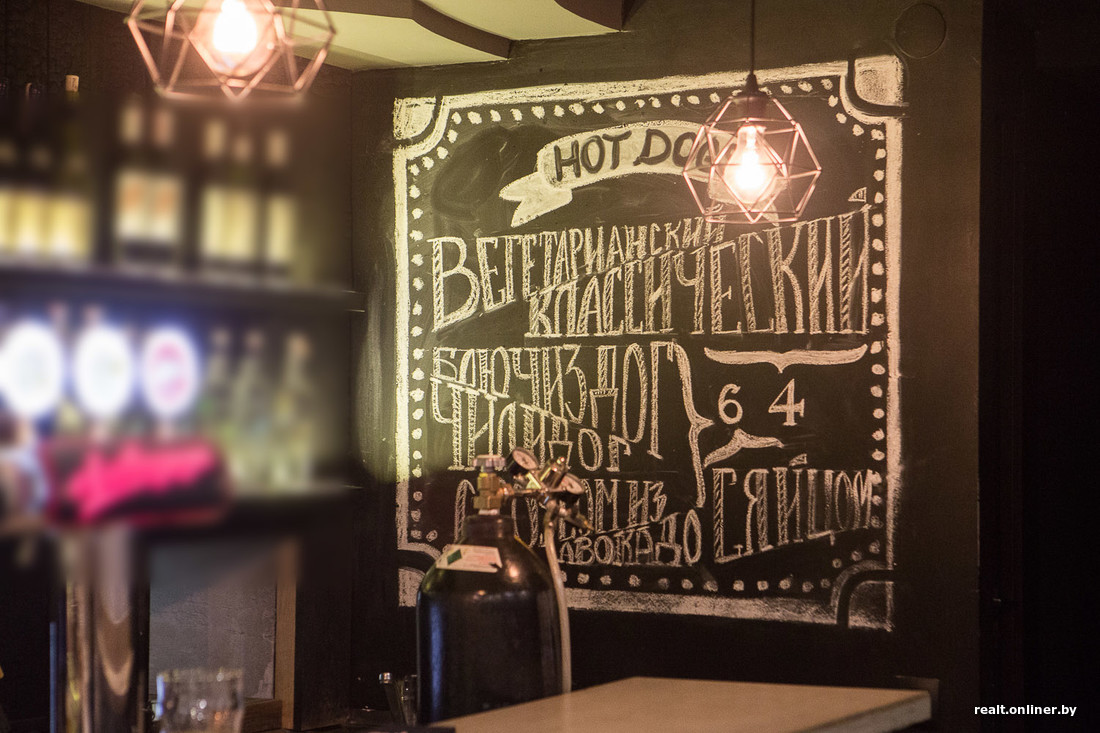 HOT DOG
ВЕГЕТАРИАНСКИЙ
КЛАССИЧЕСКИЙ
БЛЮЧИЗ ДОГ
ЧИЛИДОГ
64
ИЗ
АВОКАДО
С ЯЙЦОМ
realt.onliner.by